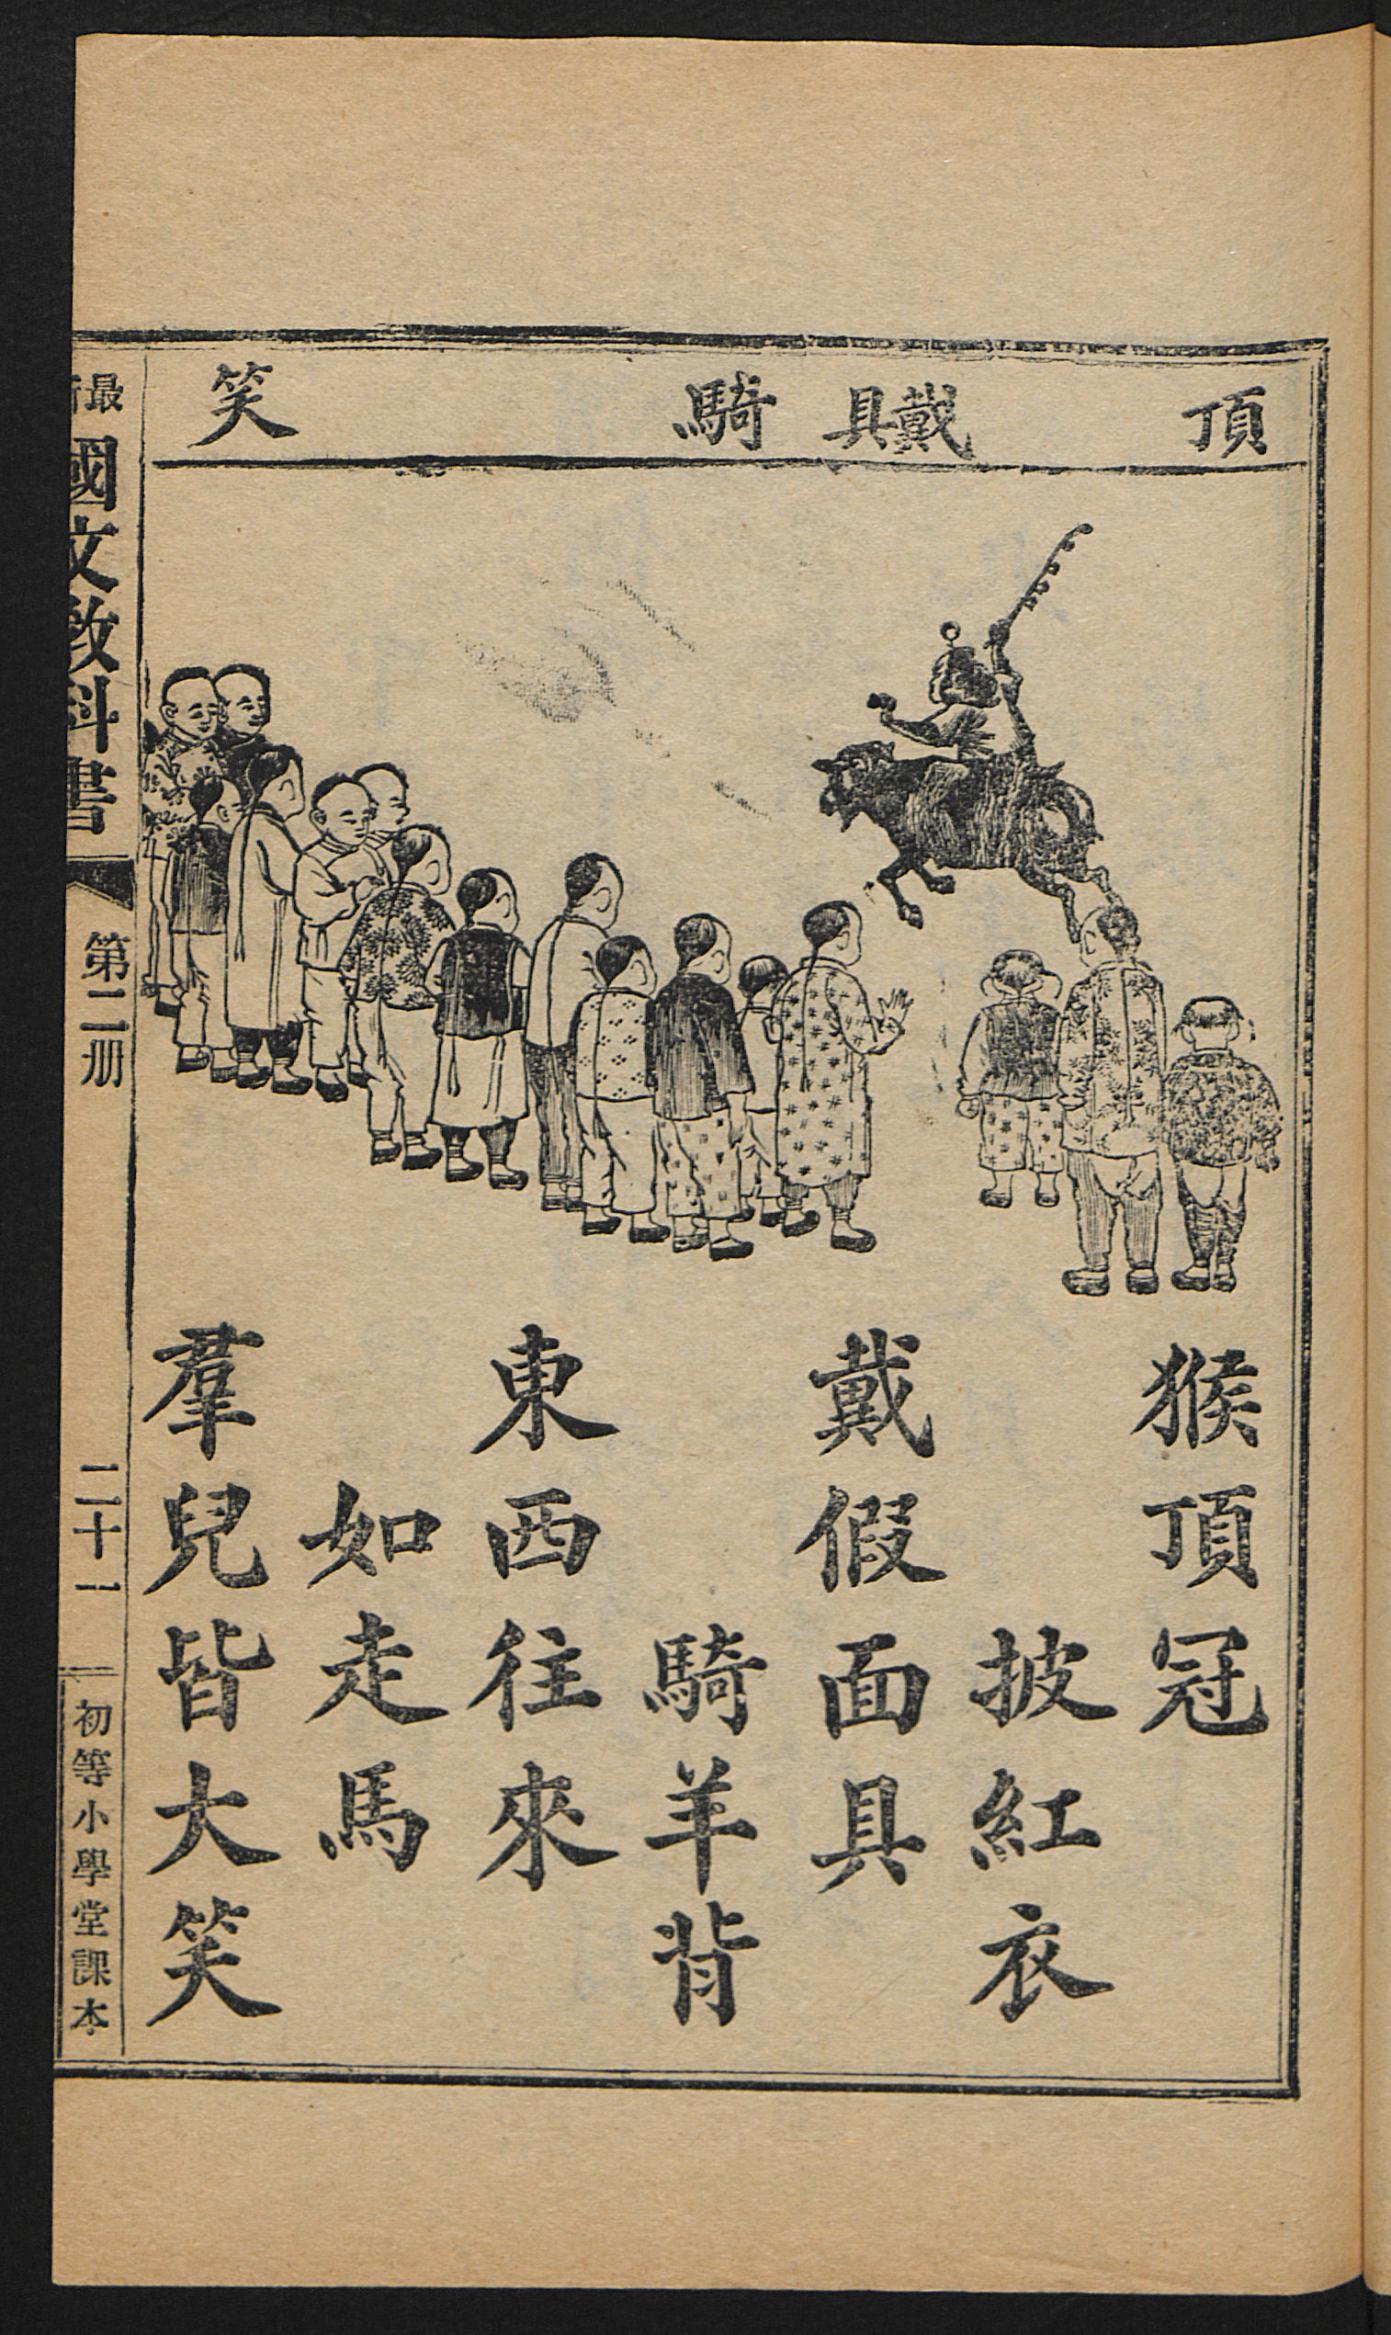 頂
戴具
騎
笑
猴頂冠
披紅衣
戴假面具
騎羊背
東西往來
如走馬
羣兒皆大笑
最
國文教科書
第二册
二十一
初等小學堂課本